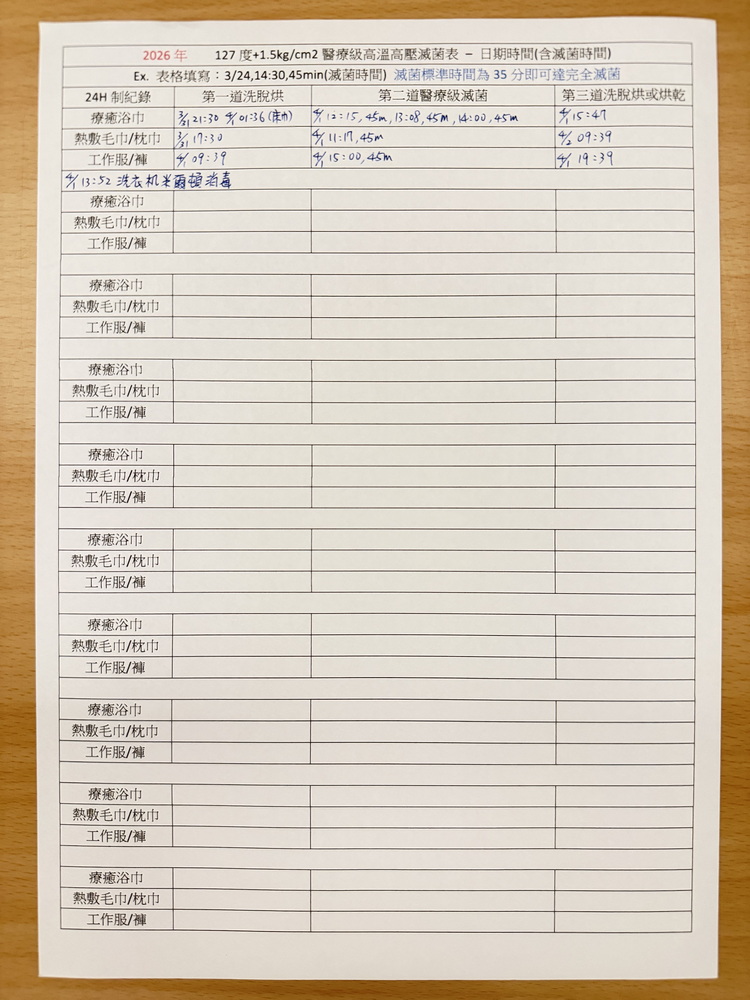 2026 年 127 度+1.5kg/cm2 醫療級高溫高壓滅菌表 – 日期時間(含滅菌時間)
Ex. 表格填寫：3/24,14:30,45min(滅菌時間) 滅菌標準時間為 35 分即可達完全滅菌
24H 制紀錄 第一道洗脫烘 第二道醫療級滅菌 第三道洗脫烘或烘乾
療癒浴巾 3/31 21:30 4/1 01:36 (床巾) 4/1 12:15,45m,13:08,45m,14:00,45m 4/1 15:47
熱敷毛巾/枕巾 3/31 17:30 4/1 11:17,45m 4/2 09:39
工作服/褲 4/1 09:39 4/1 15:00,45m 4/1 19:39
4/1 13:52 洗衣机米爾頓消毒
療癒浴巾
熱敷毛巾/枕巾
工作服/褲
療癒浴巾
熱敷毛巾/枕巾
工作服/褲
療癒浴巾
熱敷毛巾/枕巾
工作服/褲
療癒浴巾
熱敷毛巾/枕巾
工作服/褲
療癒浴巾
熱敷毛巾/枕巾
工作服/褲
療癒浴巾
熱敷毛巾/枕巾
工作服/褲
療癒浴巾
熱敷毛巾/枕巾
工作服/褲
療癒浴巾
熱敷毛巾/枕巾
工作服/褲
療癒浴巾
熱敷毛巾/枕巾
工作服/褲